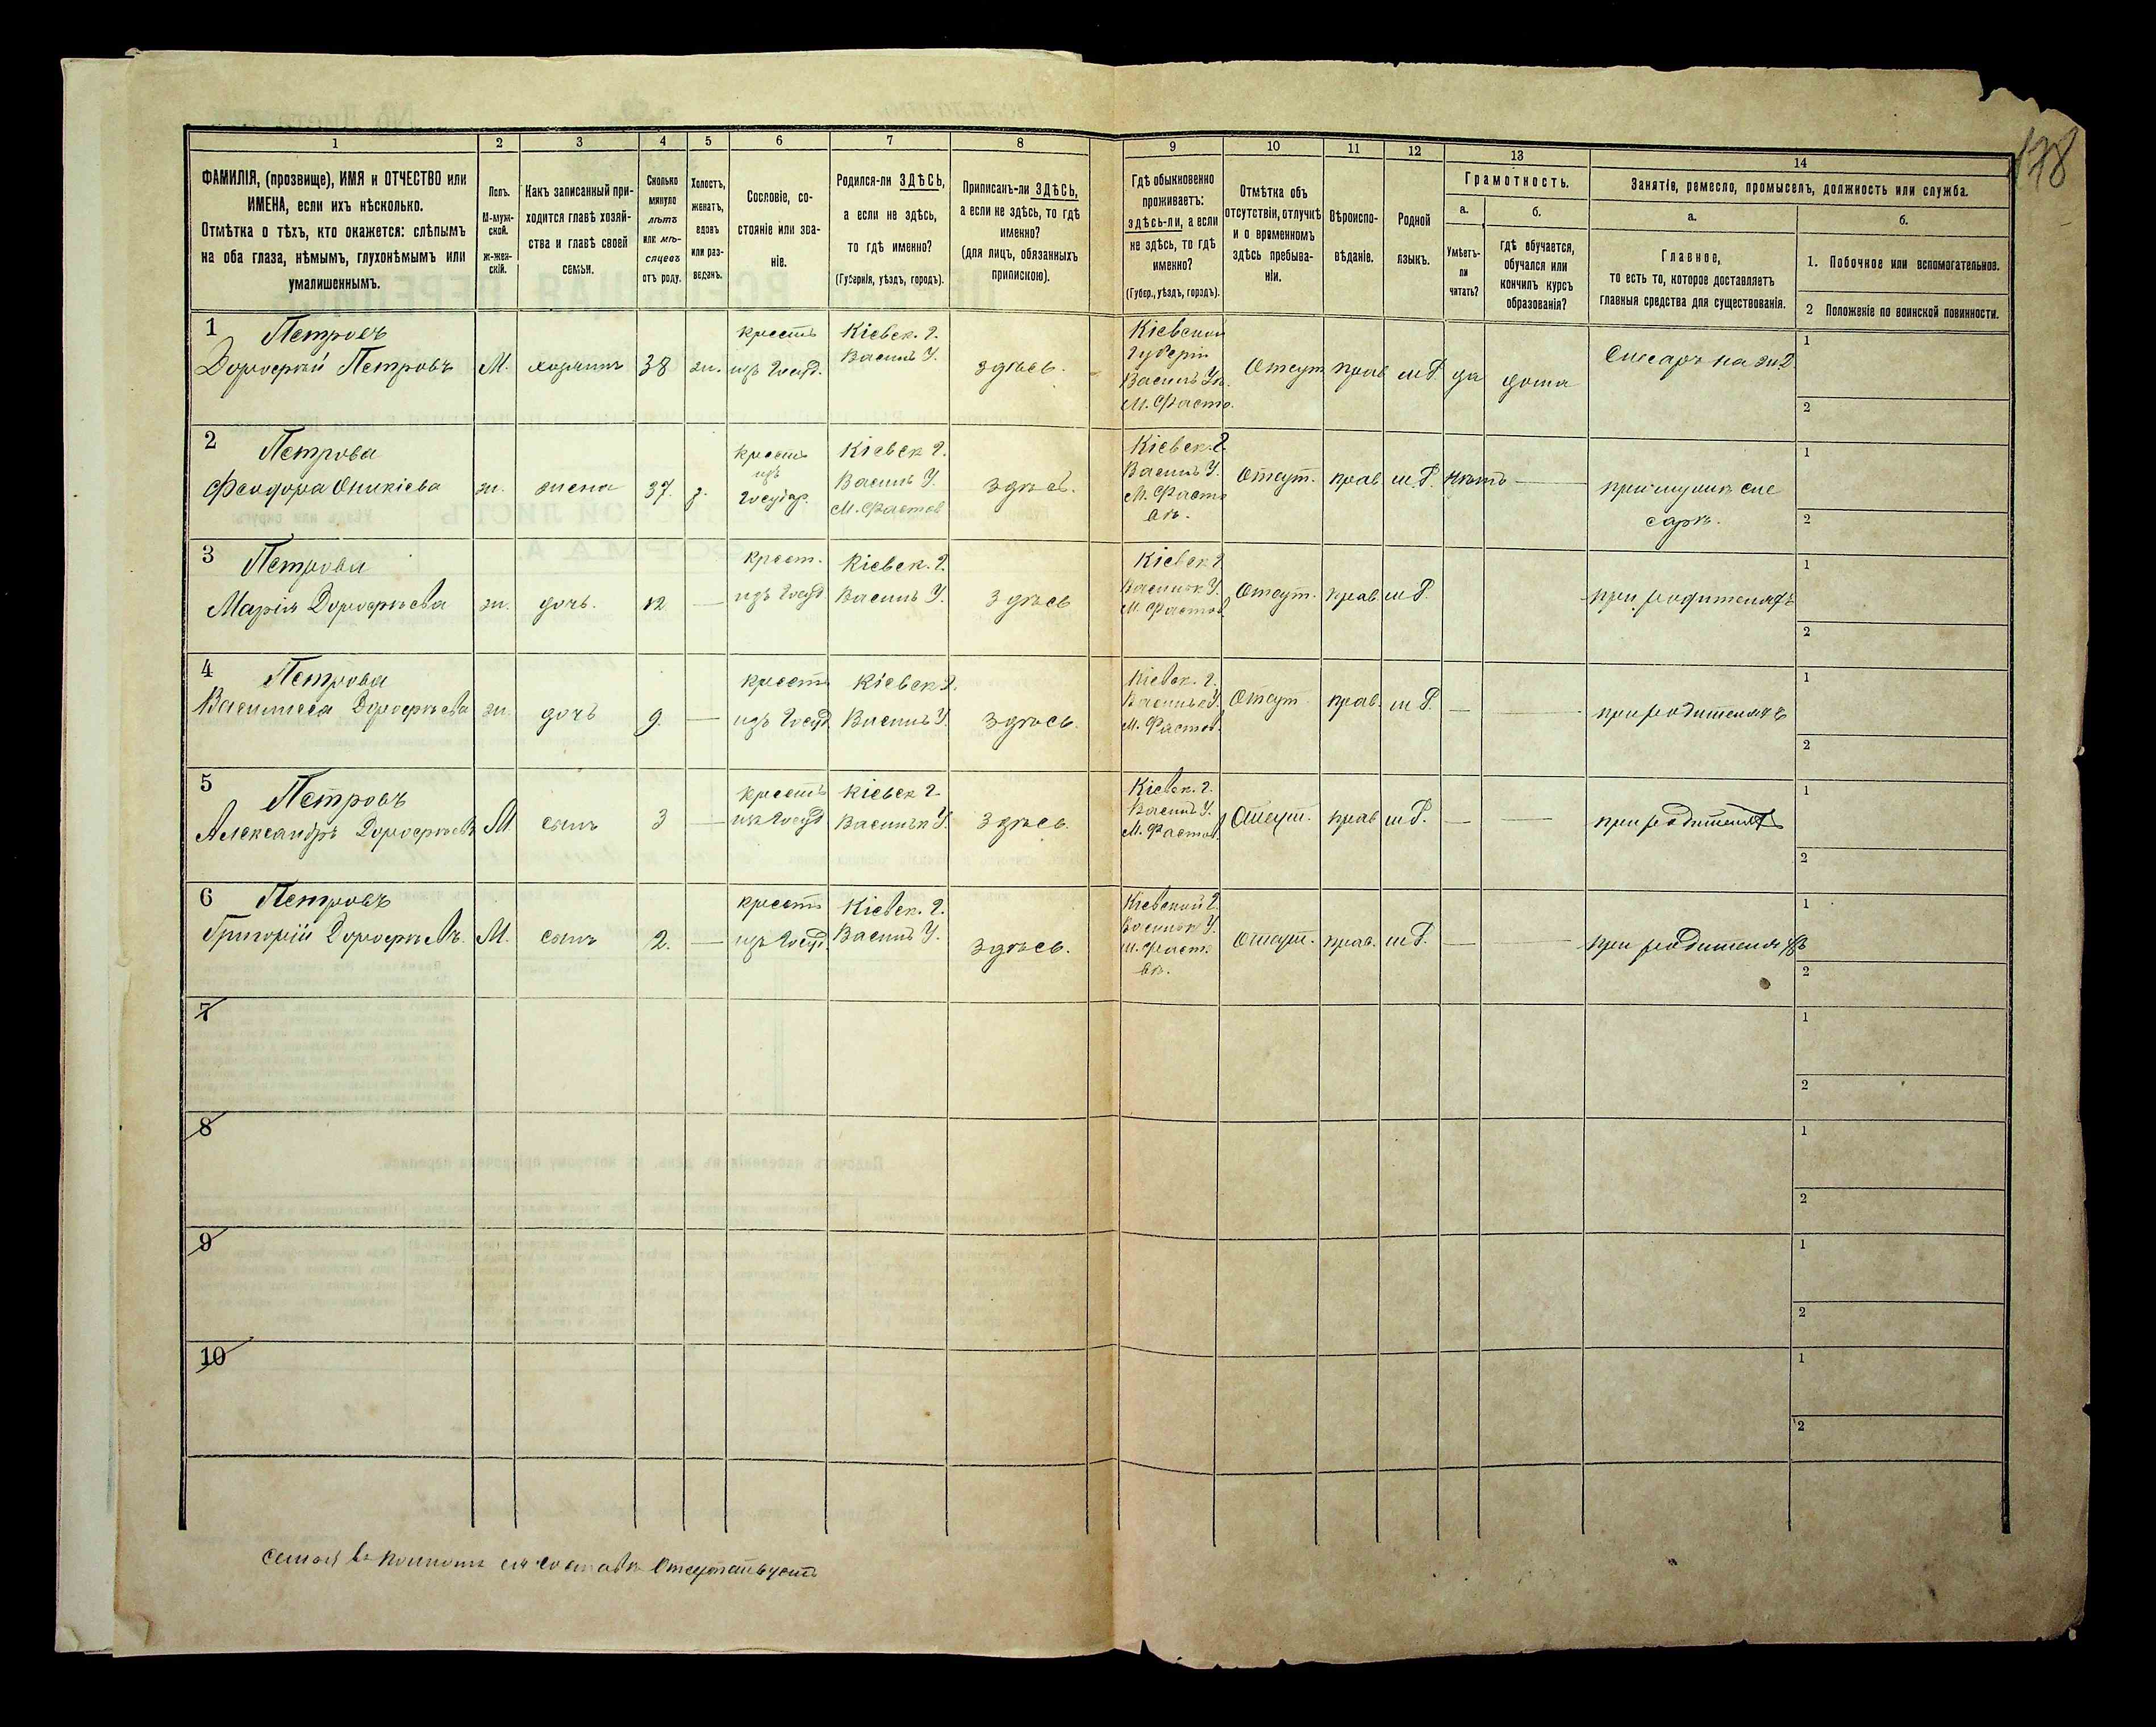 178
1
2
3
4
5
6
7
8
9
10
11
12
13
14
ФАМИЛІЯ, (прозвище), ИМЯ и ОТЧЕСТВО или
ИМЕНА, если ихъ нѣсколько.
Отмѣтка о тѣхъ, кто окажется: слѣпымъ
на оба глаза, нѣмымъ, глухонѣмымъ или
умалишеннымъ.
Полъ.
М-муж-
ской.
ж-жен-
скій.
Какъ записанный при-
ходится главѣ хозяй-
ства и главѣ своей
семьи.
Сколько
минуло
лѣтъ
или мѣ-
сяцевъ
отъ роду.
Холостъ,
женатъ,
вдовъ
или раз-
веденъ.
Сословіе, со-
стояніе или зва-
ніе.
Родился-ли ЗДѢСЬ,
а если не здѣсь,
то гдѣ именно?
(Губернія, уѣздъ, городъ).
Приписанъ-ли ЗДѢСЬ,
а если не здѣсь, то гдѣ
именно?
(для лицъ, обязанныхъ
припискою).
Гдѣ обыкновенно
проживаетъ:
здѣсь-ли, а если
не здѣсь, то гдѣ
именно?
(Губер., уѣздъ, городъ).
Отмѣтка объ
отсутствіи, отлучкѣ
и о временномъ
здѣсь пребыва-
ніи.
Вѣроиспо-
вѣданіе.
Родной
языкъ.
Грамотность.
а.
Умѣетъ-
ли
читать?
б.
гдѣ обучается,
обучался или
кончилъ курсъ
образованія?
Занятіе, ремесло, промыселъ, должность или служба.
а.
Главное,
то есть то, которое доставляетъ
главныя средства для существованія.
б.
1. Побочное или вспомогательное.
2 Положеніе по воинской повинности.
1 Петровъ
Дорофѣй Петровъ М. хозяинъ 38 ж.
крестъ
изъ Госуд.
Кіевск. г.
Василь У.
здѣсь.
Кіевской
Губерніи
Василь Уѣ.
М. Фасто.
Отсут прав м.Р. да дома
Слесаръ на ж.д.
1
2
2 Петрова
Феодора Оникіева ж. жена 37. з.
крестъ
изъ
Государ.
Кіевск г.
Василь У.
М. Фастов
здѣсь.
Кіевск. г.
Василь У.
М. Фасто
вѣ.
Отсут. прав. м.Р. нѣтъ
при мужѣ сле
сарѣ.
1
2
3 Петрова
Марія Дорофѣева ж. дочь. 12
крест.
изъ Госуд
Кіевск. г.
Василь У.
здѣсь
Кіевск г
Васильк У.
М. Фастов
Отсут. прав м Р.
при родителяхъ
1
2
4 Петрова
Василиса Дорофѣева ж. дочь 9.
крестъ
изъ Госуд
Кіевск г.
Василь У.
здѣсь.
Кіевск. г.
Васильк У.
М. Фастов.
Отсут. прав. м Р.
при родителяхъ
1
2
5 Петровъ
Александръ Дорофѣевъ М сынъ 3
крестъ
изъ Госуд
Кіевск г.
Васильк У.
здѣсь.
Кіевск. г.
Василь У.
М. Фастов
Отсут. прав м Р.
при родителяхъ
1
2
6 Петровъ
Григорій Дорофѣевъ. М. сынъ 2.
крестъ
изъ Госуд.
Кіевск. г.
Василь У.
здѣсь.
Кіевской г.
Васильк У.
м. Фаст.
вѣ.
Отсут. прав. м Р.
при родителяхъ
1
2
7
1
2
8
1
2
9
1
2
10
1
2
Семья въ полномъ ея составѣ Отсутствуетъ